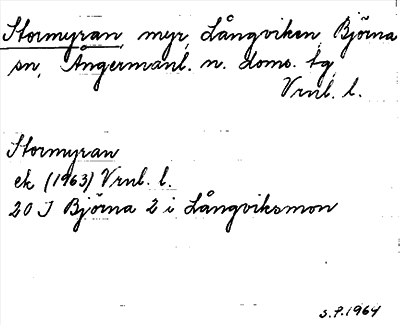 Stormyran, myr, Långviken, Björna
sn, Ångermanl. n. doms. tg,
Vrnl. l.
Stormyran
ek (1963) Vrnl. l.
20 I Björna 2 i Långviksmon
s.7.1964